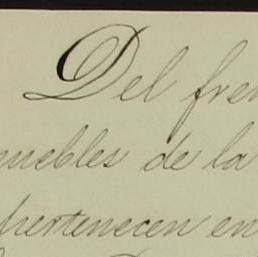 Del
muebles de la
pertenecen en